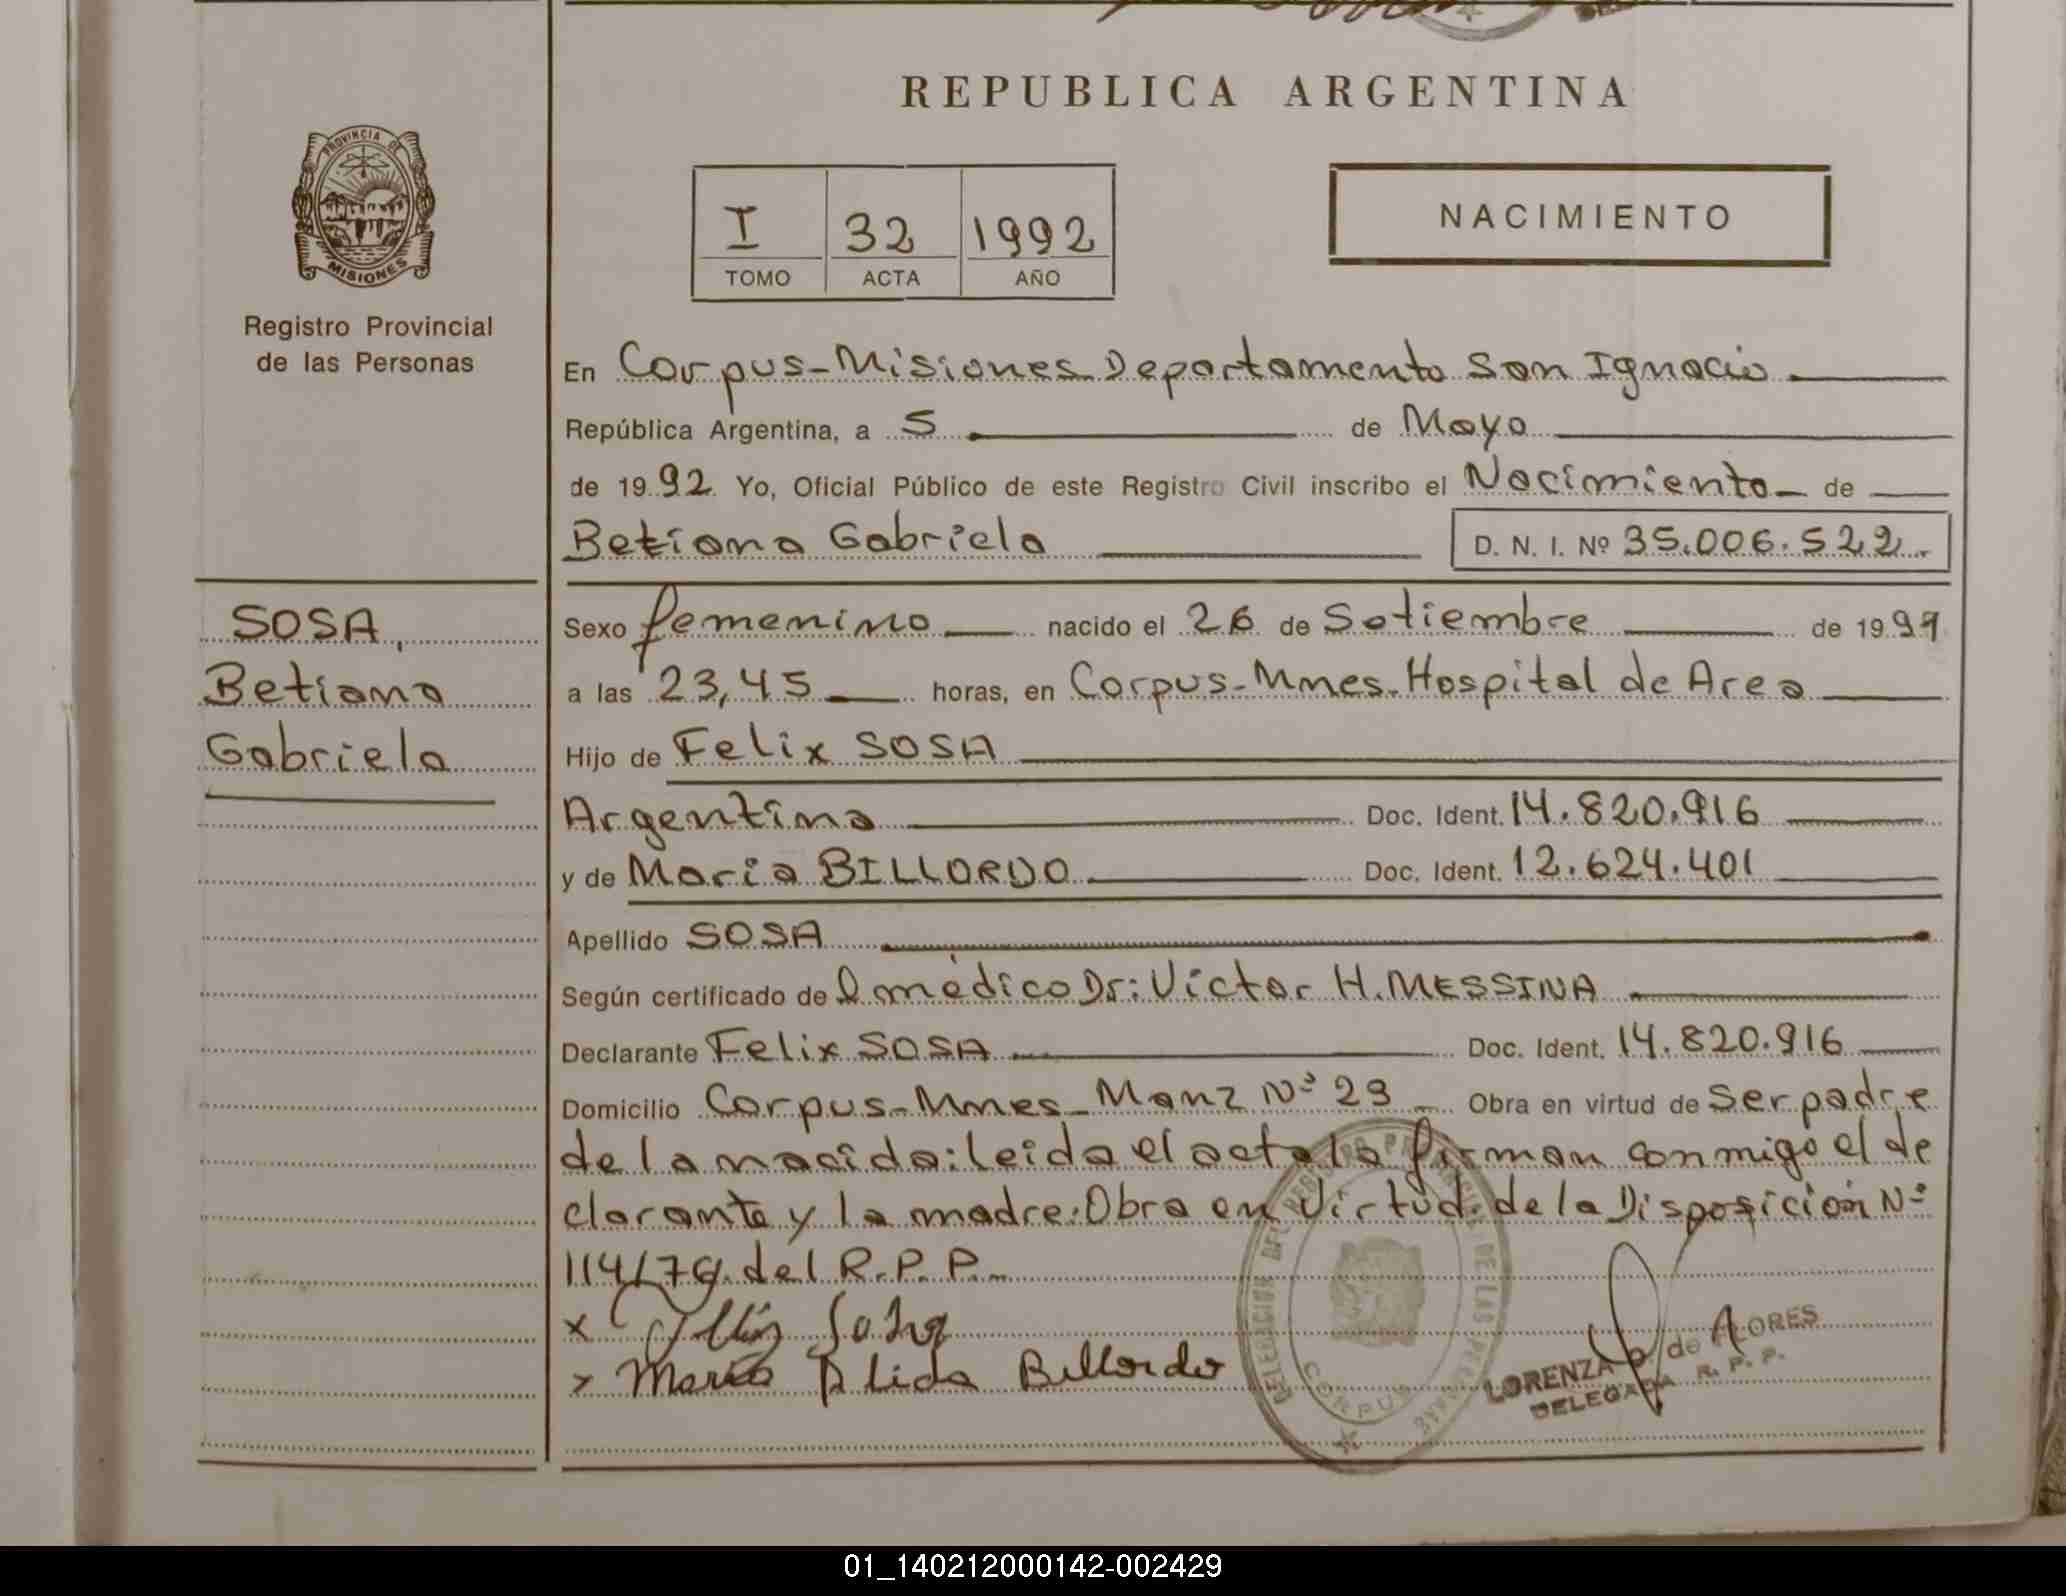 REPUBLICA ARGENTINA
PROVINCIA DE
MISIONES
Registro Provincial
de las Personas
I 32 1992
TOMO ACTA AÑO
NACIMIENTO
En Corpus-Misiones Departamento San Ignacio
República Argentina, a 5 de Mayo
de 1992 Yo, Oficial Público de este Registro Civil inscribo el Nacimiento de
Betiana Gabriela D. N. I. Nº 35.006.522
SOSA,
Betiana
Gabriela
Sexo femenino nacido el 26 de Setiembre de 1991
a las 23,45 horas, en Corpus-Mnes-Hospital de Area
Hijo de Felix SOSA
Argentina Doc. Ident. 14.820.916
y de Maria BILLORDO Doc. Ident. 12.624.401
Apellido SOSA
Según certificado del médico Dr: Victor H. MESSINA
Declarante Felix SOSA Doc. Ident. 14.820.916
Domicilio Corpus-Mnes-Manz Nº 23 Obra en virtud de Ser padre
de la nacida: leida el acta la firman conmigo el de
clarante y la madre: Obra en Virtud de la Disposición Nº
114/79 del R.P.P.
x
> Maria Alida Billordo
DELEGACION DEL REGISTRO PROVINCIAL DE LAS PERSONAS
CORPUS
LORENZA de FLORES
DELEGADA R. P. P.
01_140212000142-002429